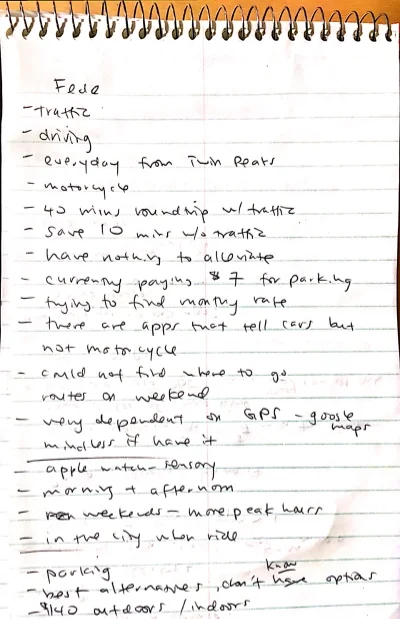 Fede
- traffic
- driving
- everyday from Twin Peaks
- motorcycle
- 40 mins roundtrip w/ traffic
- save 10 mins w/o traffic
- have nothing to alleviate
- currently paying $7 for parking
- trying to find monthly rate
- there are apps that tell cars but
not motorcycle
- could not find where to go
routes on weekend
- very dependent on GPS - google maps
mindless if have it
- apple watch - sensory
- morning + afternoon
- weekends - more peak hours
- in the city when ride
- parking
- best alternatives, don't have know options
- $140 outdoors / indoors